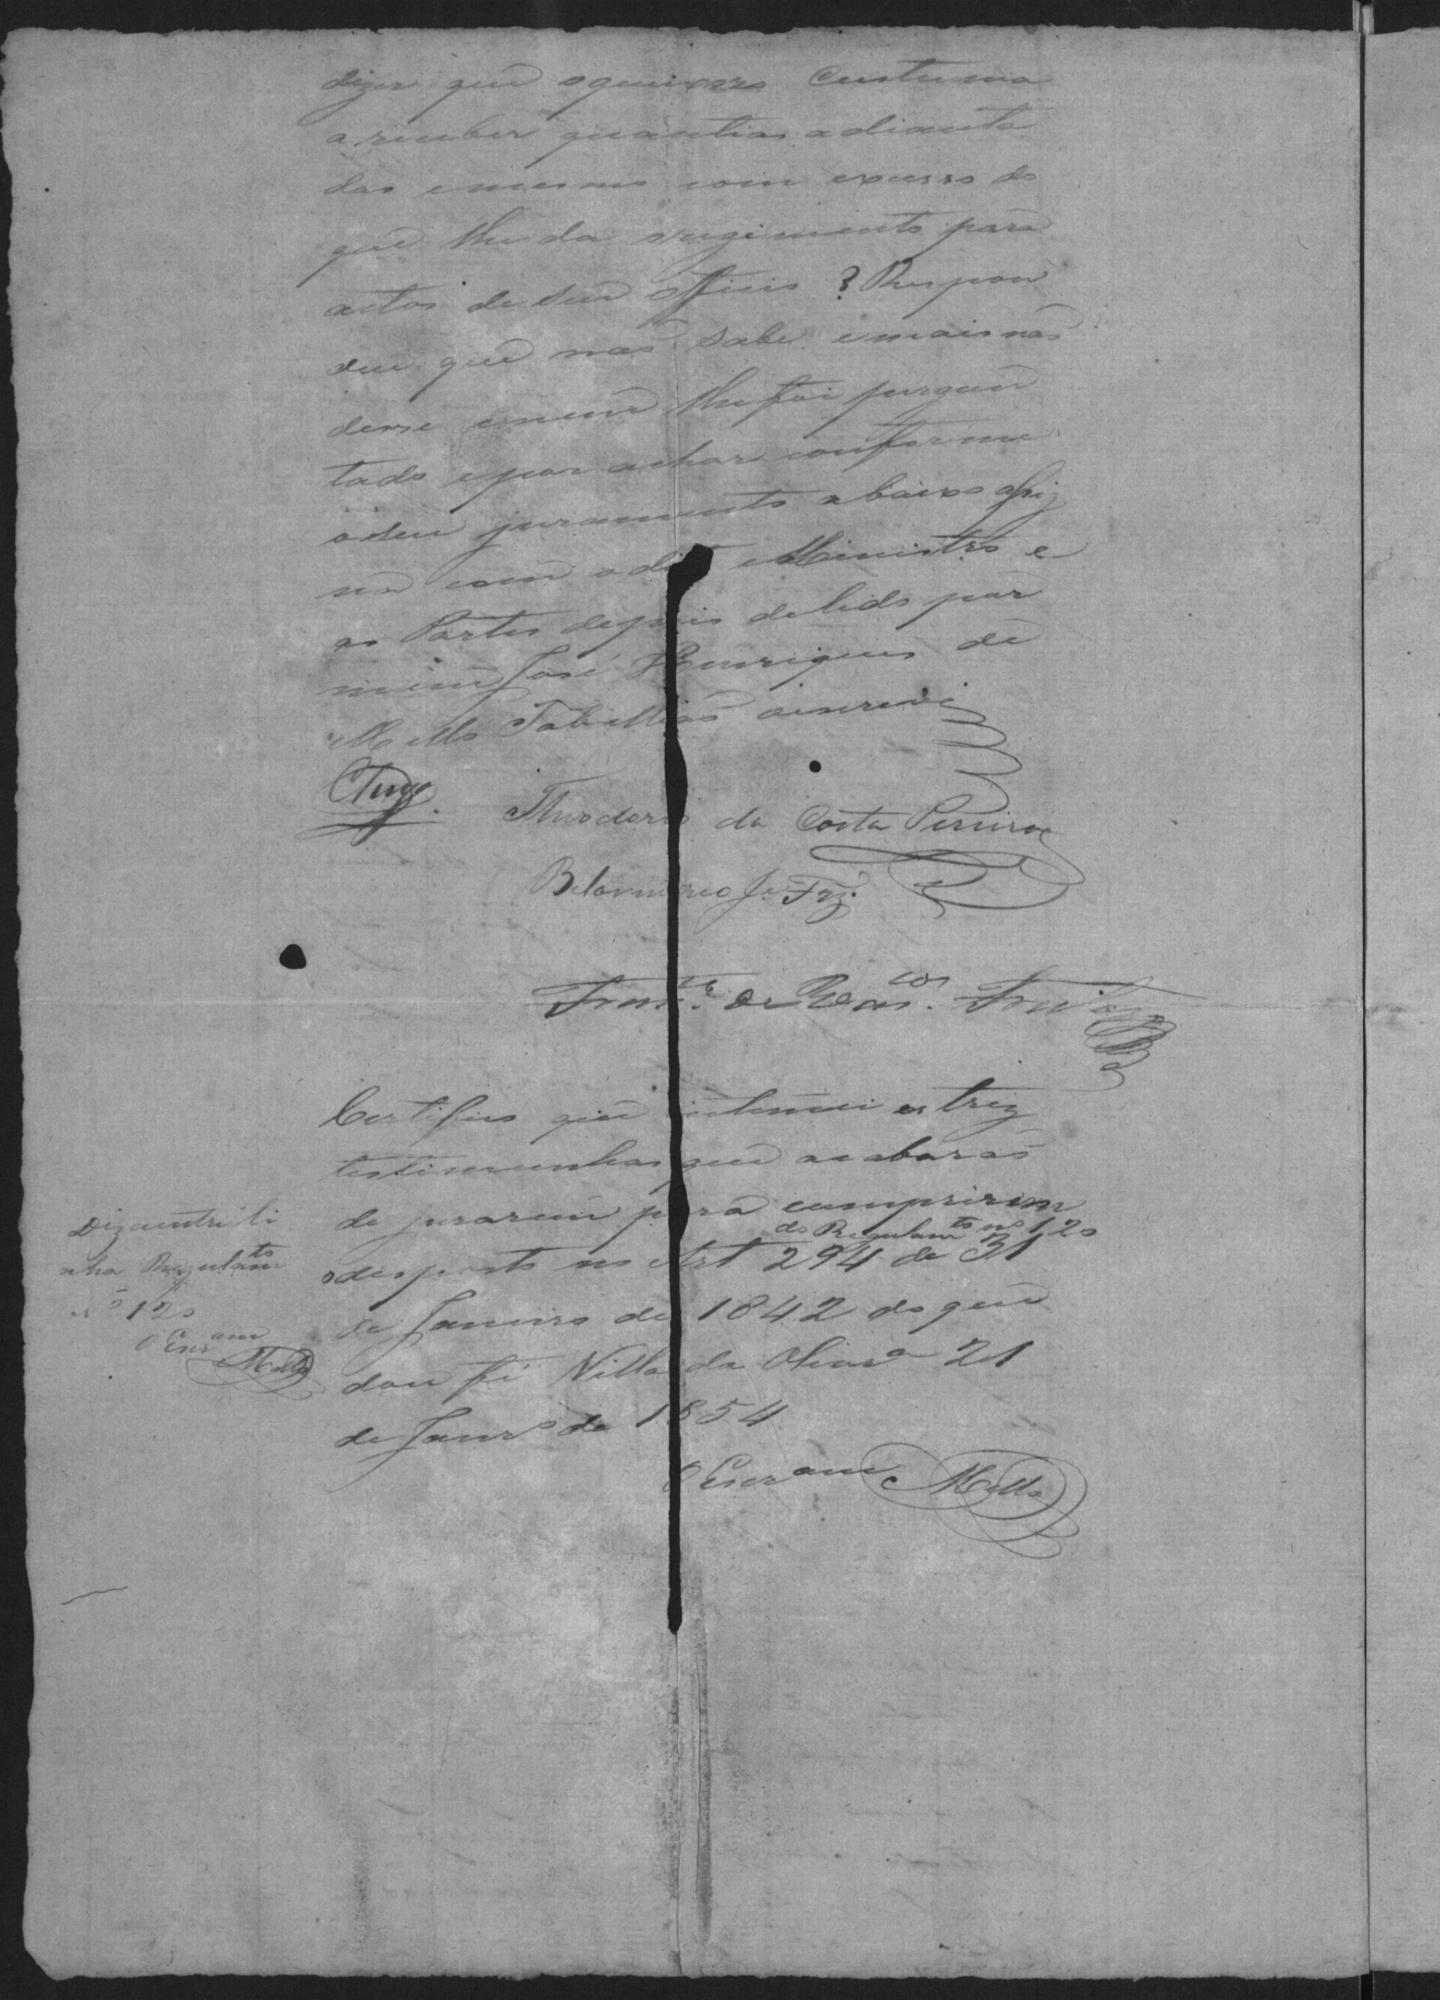 dizer que o queixozo custuma
a receber quantias adianta
das e mesmo com excesso do
que lhe da o regimento para
actos de seu officio? Respon
deu que naõ sabe e mais naõ
dice e nem lhe foi pergun
tado e por achar conforme
o seu juramento abaixo assig
na com o dito Ministro e
as Partes depois de lido por
mim José Henriques de
Mello Tabelliaõ o escrevi
Theodoro da Costa Pereira
Belarmino
Certifico que intimei as trez
testimunhas que acabaraõ
de jurarem para cumprirem
do Regulamto no 120
o desposto no Art 294 de 31
de Janeiro de 1842 do que
dou fé Villa da 21
de Janro de 1854
O Escram Mello
Diz a entreli
nha Regulamto
No 120
O Escram
Mello